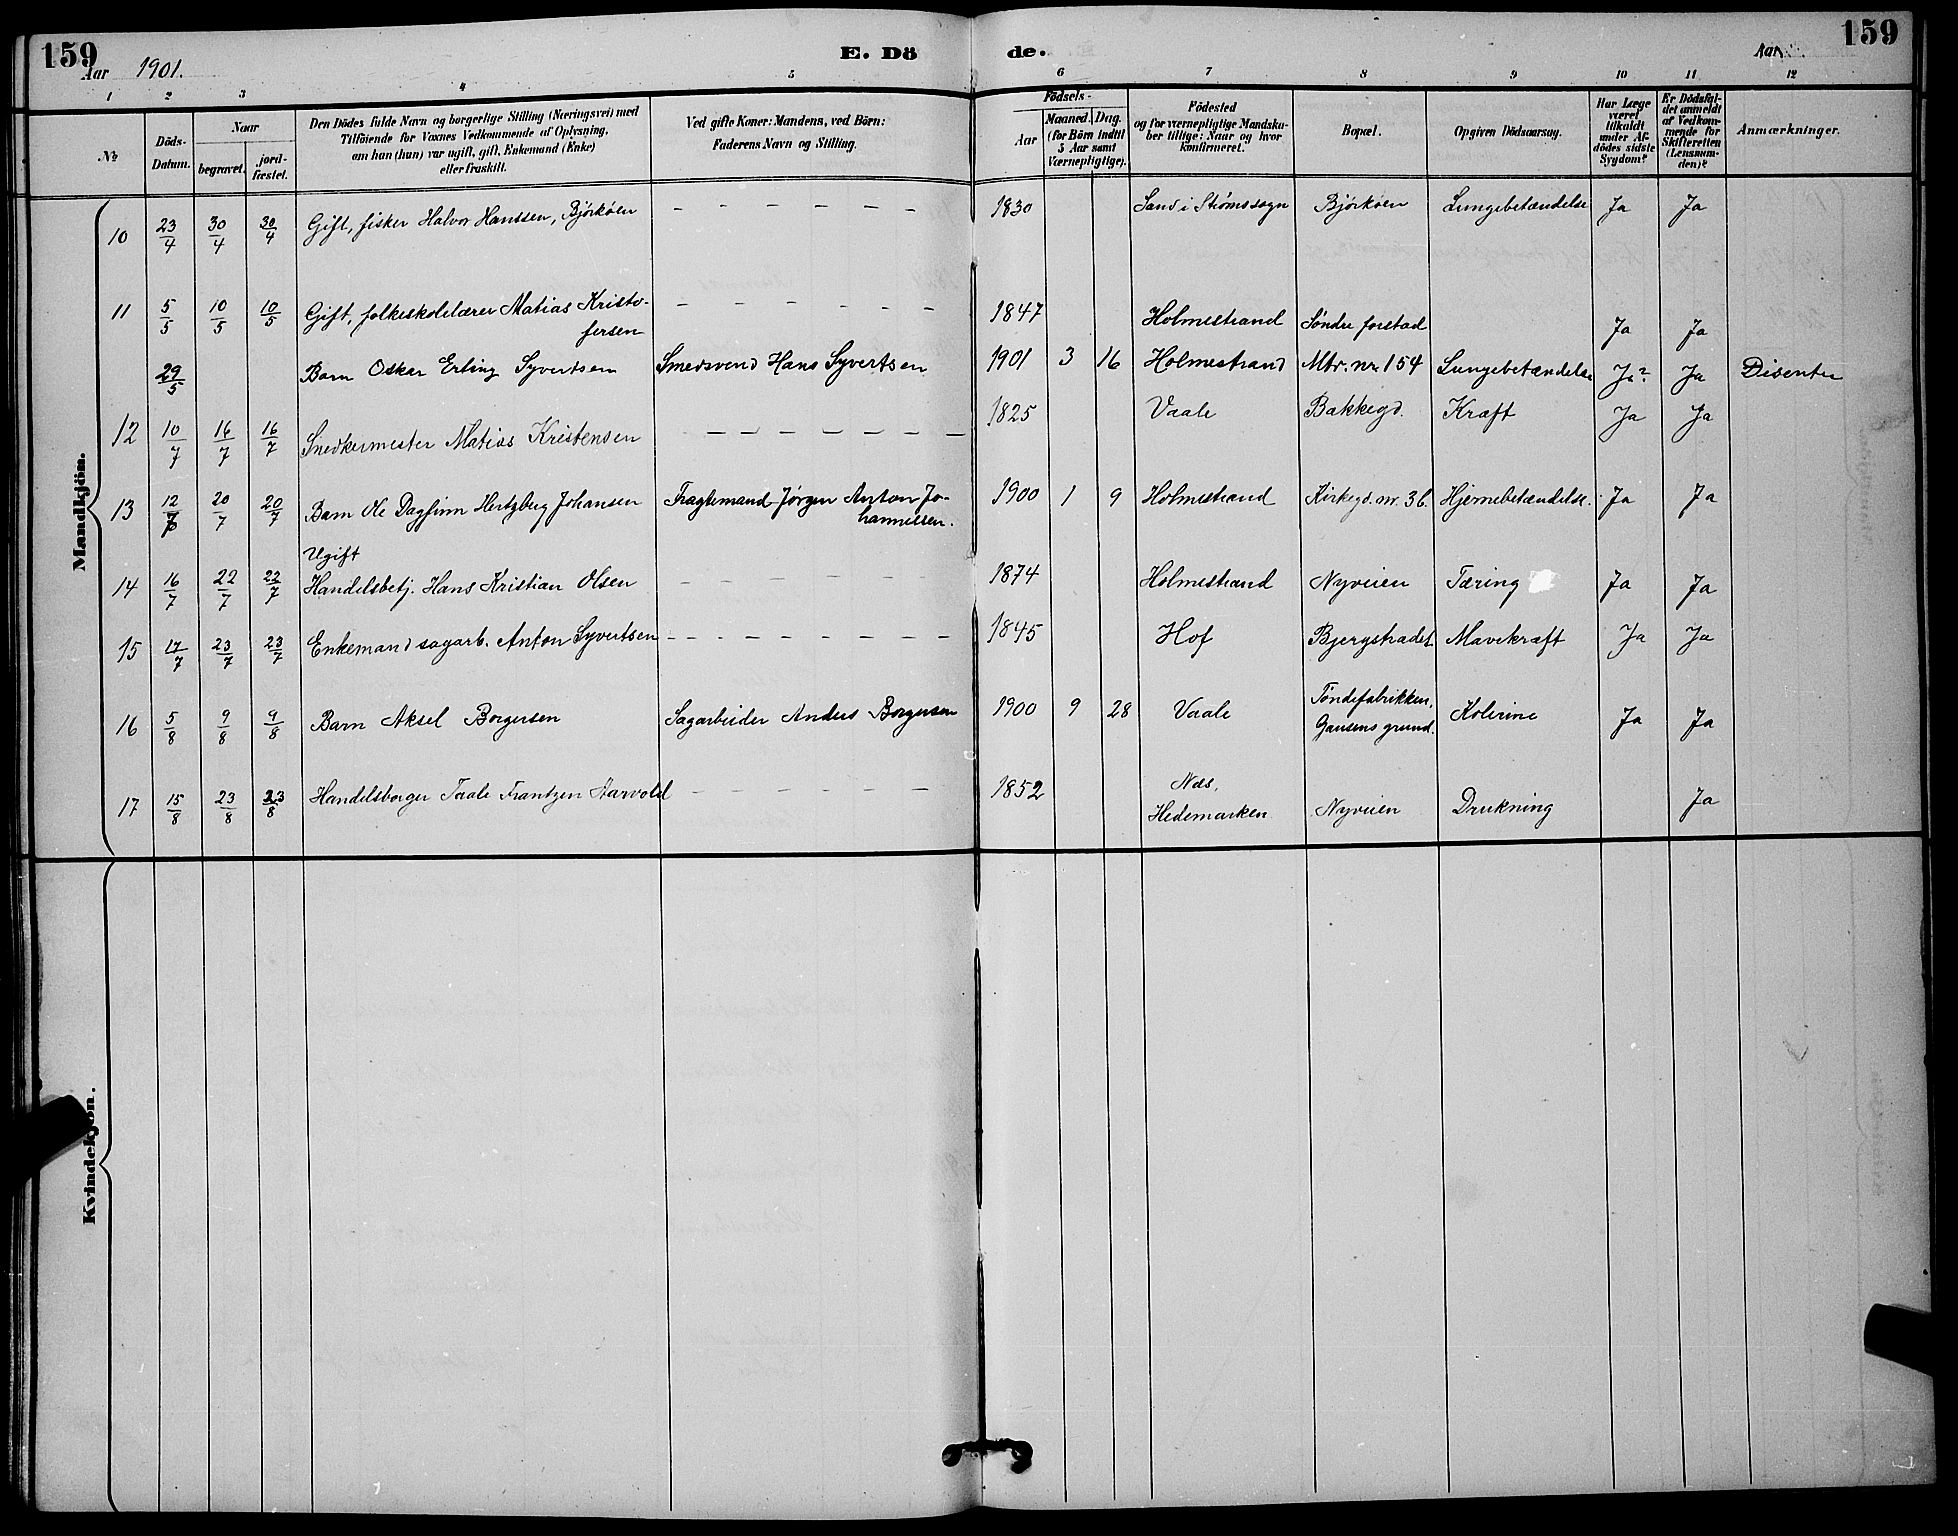 159 E. Dö de. 159
Aar 1901. Aar
1 2 3 4 5 6 7 8 9 10 11 12
№
Döds-Datum.
Naar
begravet.
jord-fæstet.
Den Dödes fulde Navn og borgerlige Stilling (Næringsvei) med
Tilföiende for Voxnes Vedkommende af Oplysning,
om han (hun) var ugift, gift, Enkemand (Enke)
eller fraskilt.
Ved gifte Koner: Mandens, ved Börn:
Faderens Navn og Stilling.
Födsels-
Aar
Maaned. Dag.
(for Börn indtil
5 Aar samt
Værnepligtige).
Födested
og for værnepligtige Mandska-
ber tillige: Naar og hvor
konfirmeret.
Bopæl.
Opgiven Dödsaarsag.
Har Læge
været
tilkaldt
under Af-
dödes sidste
Sygdom?
Er Dödsfal-
det anmeldt
af Vedkom-
mende for
Skifteretten
(Lensman-
den)?
Anmærkninger.
Mandkjön.
10 23/4 30/4 30/4 Gift, fisker Halvor Hanssen, Bjørkøen - - - - - - 1830 Sand i Strømssogn Bjørkøen Lungebetændelse Ja Ja
11 5/5 10/5 10/5 Gift, folkeskolelærer Matias Kristo-
fersen - - - - - - - 1847 Holmestrand Søndre forstad Ja Ja
29/5 Barn Oskar Erling Syvertsen Smedsvend Hans Syvertsen 1901 3 16 Holmestrand Mtr. nr. 154 Lungebetændelse Ja? Ja Disenter
12 10/7 16/7 16/7 Snedkermester Matias Kristensen - - - - - - - 1825 Vaale Bakkegd. Kræft Ja Ja
13 12/7 20/7 20/7 Barn Ole Dagfinn Hertzberg Johansen Fragtemand Jørgen Anton Jo-
hannessen. 1900 1 9 Holmestrand Kirkegd. nr. 36. Hjernebetændelse. Ja Ja
Ugift
14 16/7 22/7 22/7 Handelsbetj. Hans Kristian Olsen - - - - - - 1874 Holmestrand Nyveien Tæring Ja Ja
15 17/7 23/7 23/7 Enkemand sagarb. Anton Syvertsen - - - - - - - - 1845 Hof Bjergstrædet Mavekræft Ja Ja
16 5/8 9/8 9/8 Barn Aksel Borgersen Sagarbeider Anders Borgersen 1900 9 28 Vaale Tøndefabrikken,
Gausens grund. Kolerine Ja Ja
17 15/8 23/8 23/8 Handelsborger Taale Frantzen Aarvold - - - - - - 1852 Næs,
Hedemarken Nyveien Drukning Ja
Kvindekjön.